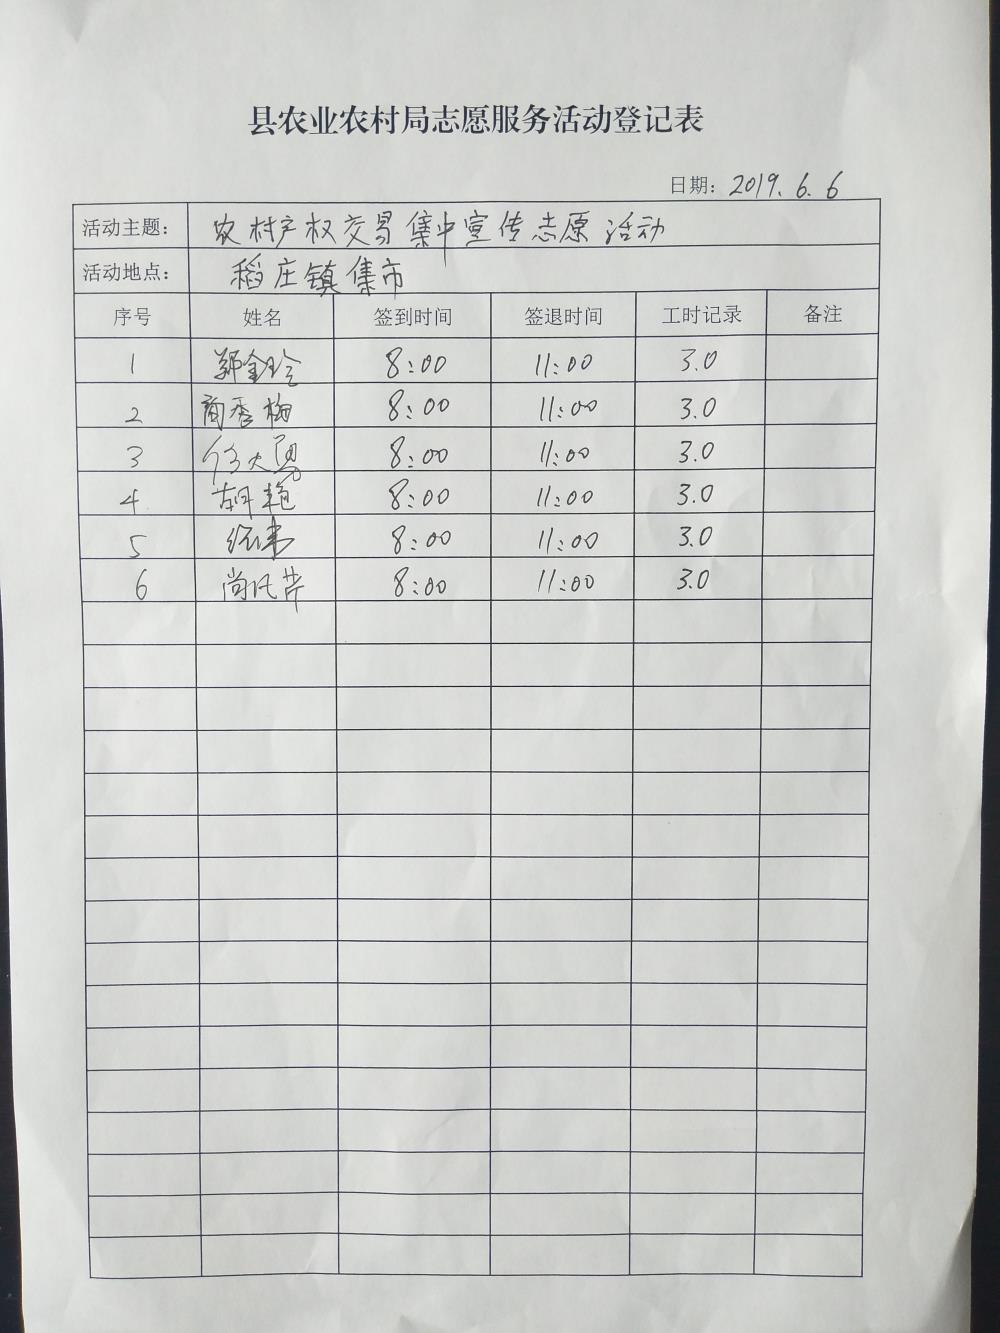 县农业农村局志愿服务活动登记表
日期：2019.6.6
活动主题： 农村产权交易集中宣传志愿活动
活动地点： 稻庄镇集市
序号 姓名 签到时间 签退时间 工时记录 备注
1 郑金玲 8:00 11:00 3.0
2 商秀梅 8:00 11:00 3.0
3 8:00 11:00 3.0
4 胡艳 8:00 11:00 3.0
5 8:00 11:00 3.0
6 尚凤芹 8:00 11:00 3.0